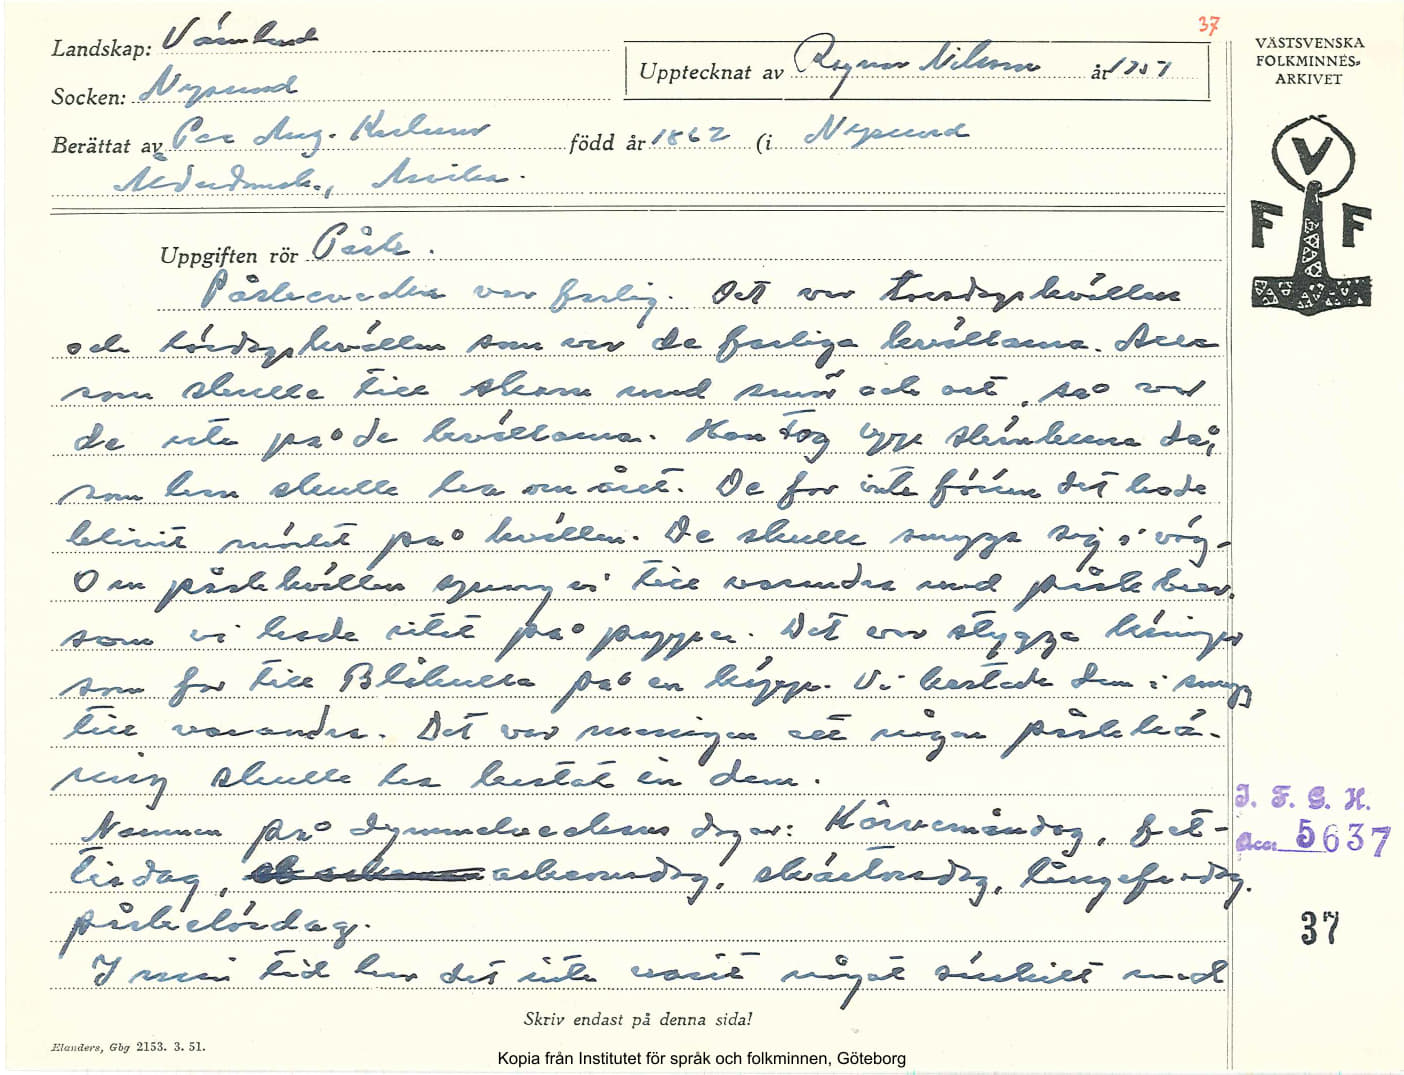 37
Landskap: Värmland
Socken: Nysund
Upptecknat av Ragnar Nilsson år 1957
Berättat av Per Aug. Karlsson född år 1862 (i Nysund
Arvika.
VÄSTSVENSKA
FOLKMINNES-
ARKIVET
V
F F
Uppgiften rör Påsk.
Påskeveckan var farlig. Det var torsdagskvällen
och lördagskvällen som var de farliga kvällarna. Alla
som skulle till skam med smör och ost, så var
de ute på de kvällarna. Han tog upp skinkorna då,
som han skulle ha om året. De for inte förrän det hade
blivit mörkt på kvällen. De skulle smyga sig i väg.
Om påskkvällen sprang vi till varandra med påskbrev,
som vi hade ritat på papper. Det var stygga käringar
som for till Blåkulla på en käpp. Vi kastade dem i smyg
till varandra. Det var meningen att någon påskkä-
ring skulle ha kastat in dem.
Namnen på dymmelveckans dagar: Korvemåndag, fet-
tisdag, askeonsdag, skärtorsdag, långefredag,
påskelördag.
I min tid har det inte varit något särskilt med
I. F. G. H.
Acc. 5637
37
Skriv endast på denna sida!
Elanders, Gbg 2153. 3. 51.
Kopia från Institutet för språk och folkminnen, Göteborg